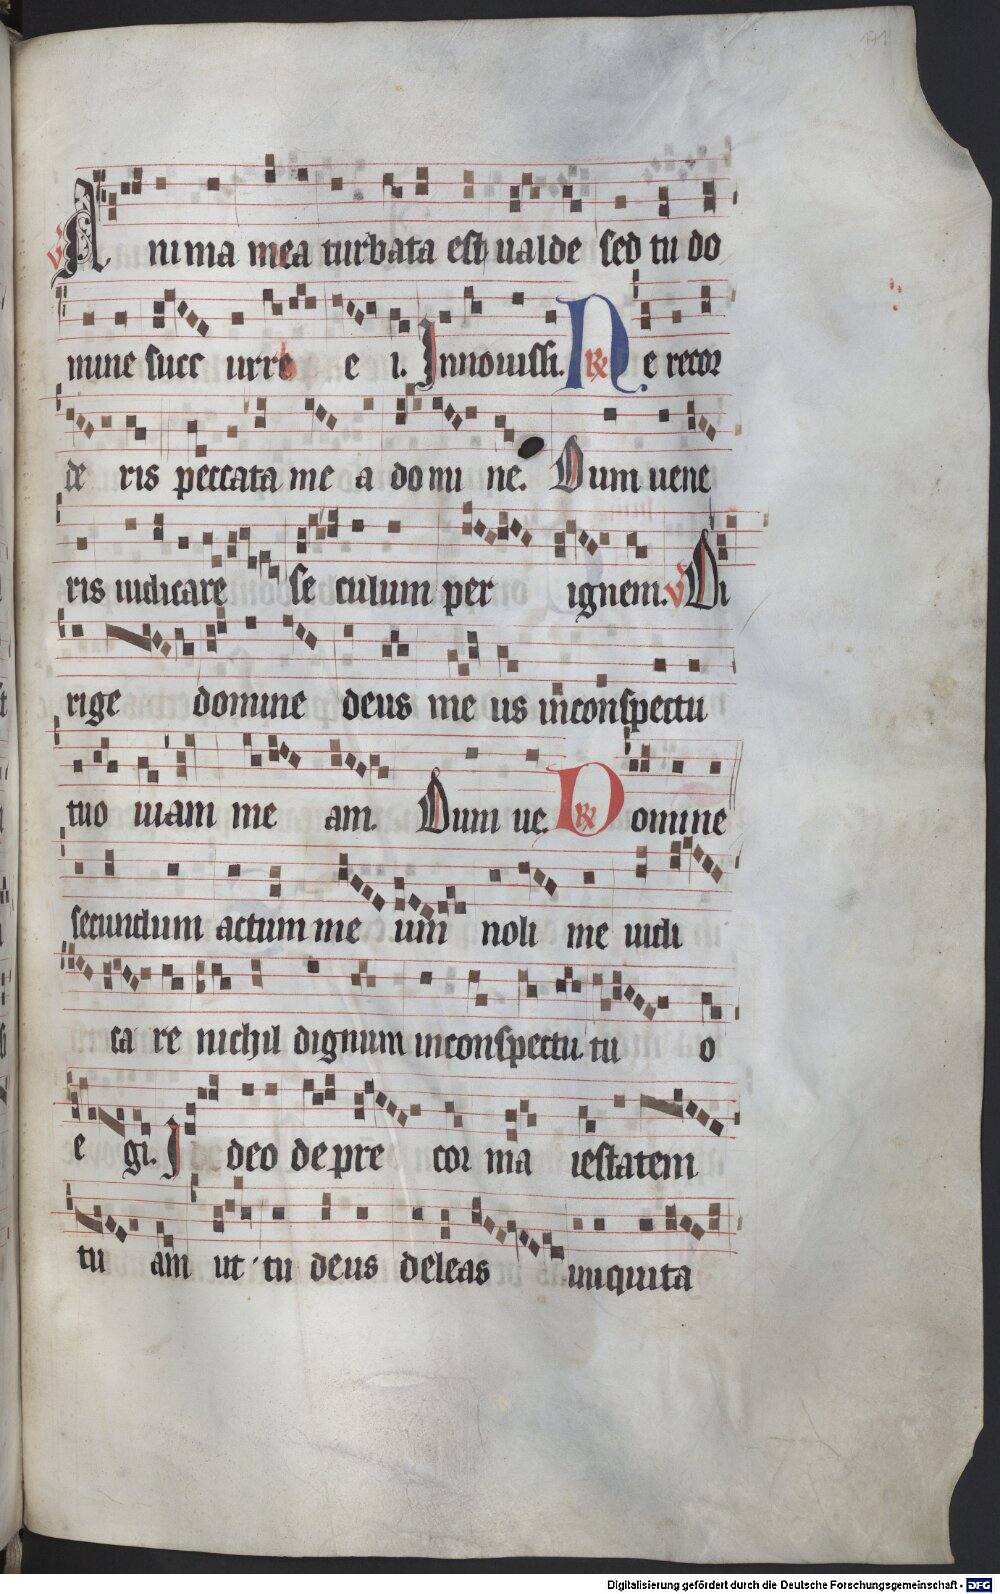 171
v Anima mea turbata est ualde sed tu do
mine succ urre e i. Innouissi. R Ne recor
de ris peccata me a domi ne. Dum uene
ris iudicare seculum per ignem. v Di
rige domine deus me us inconspectu
tuo uiam me am. Dum ue. R Domine
secundum actum me um noli me iudi
ca re nichil dignum inconspectu tu o
e gi. I deo depre cor ma iestatem
tu am ut tu deus deleas iniquita
Digitalisierung gefördert durch die Deutsche Forschungsgemeinschaft - DFG